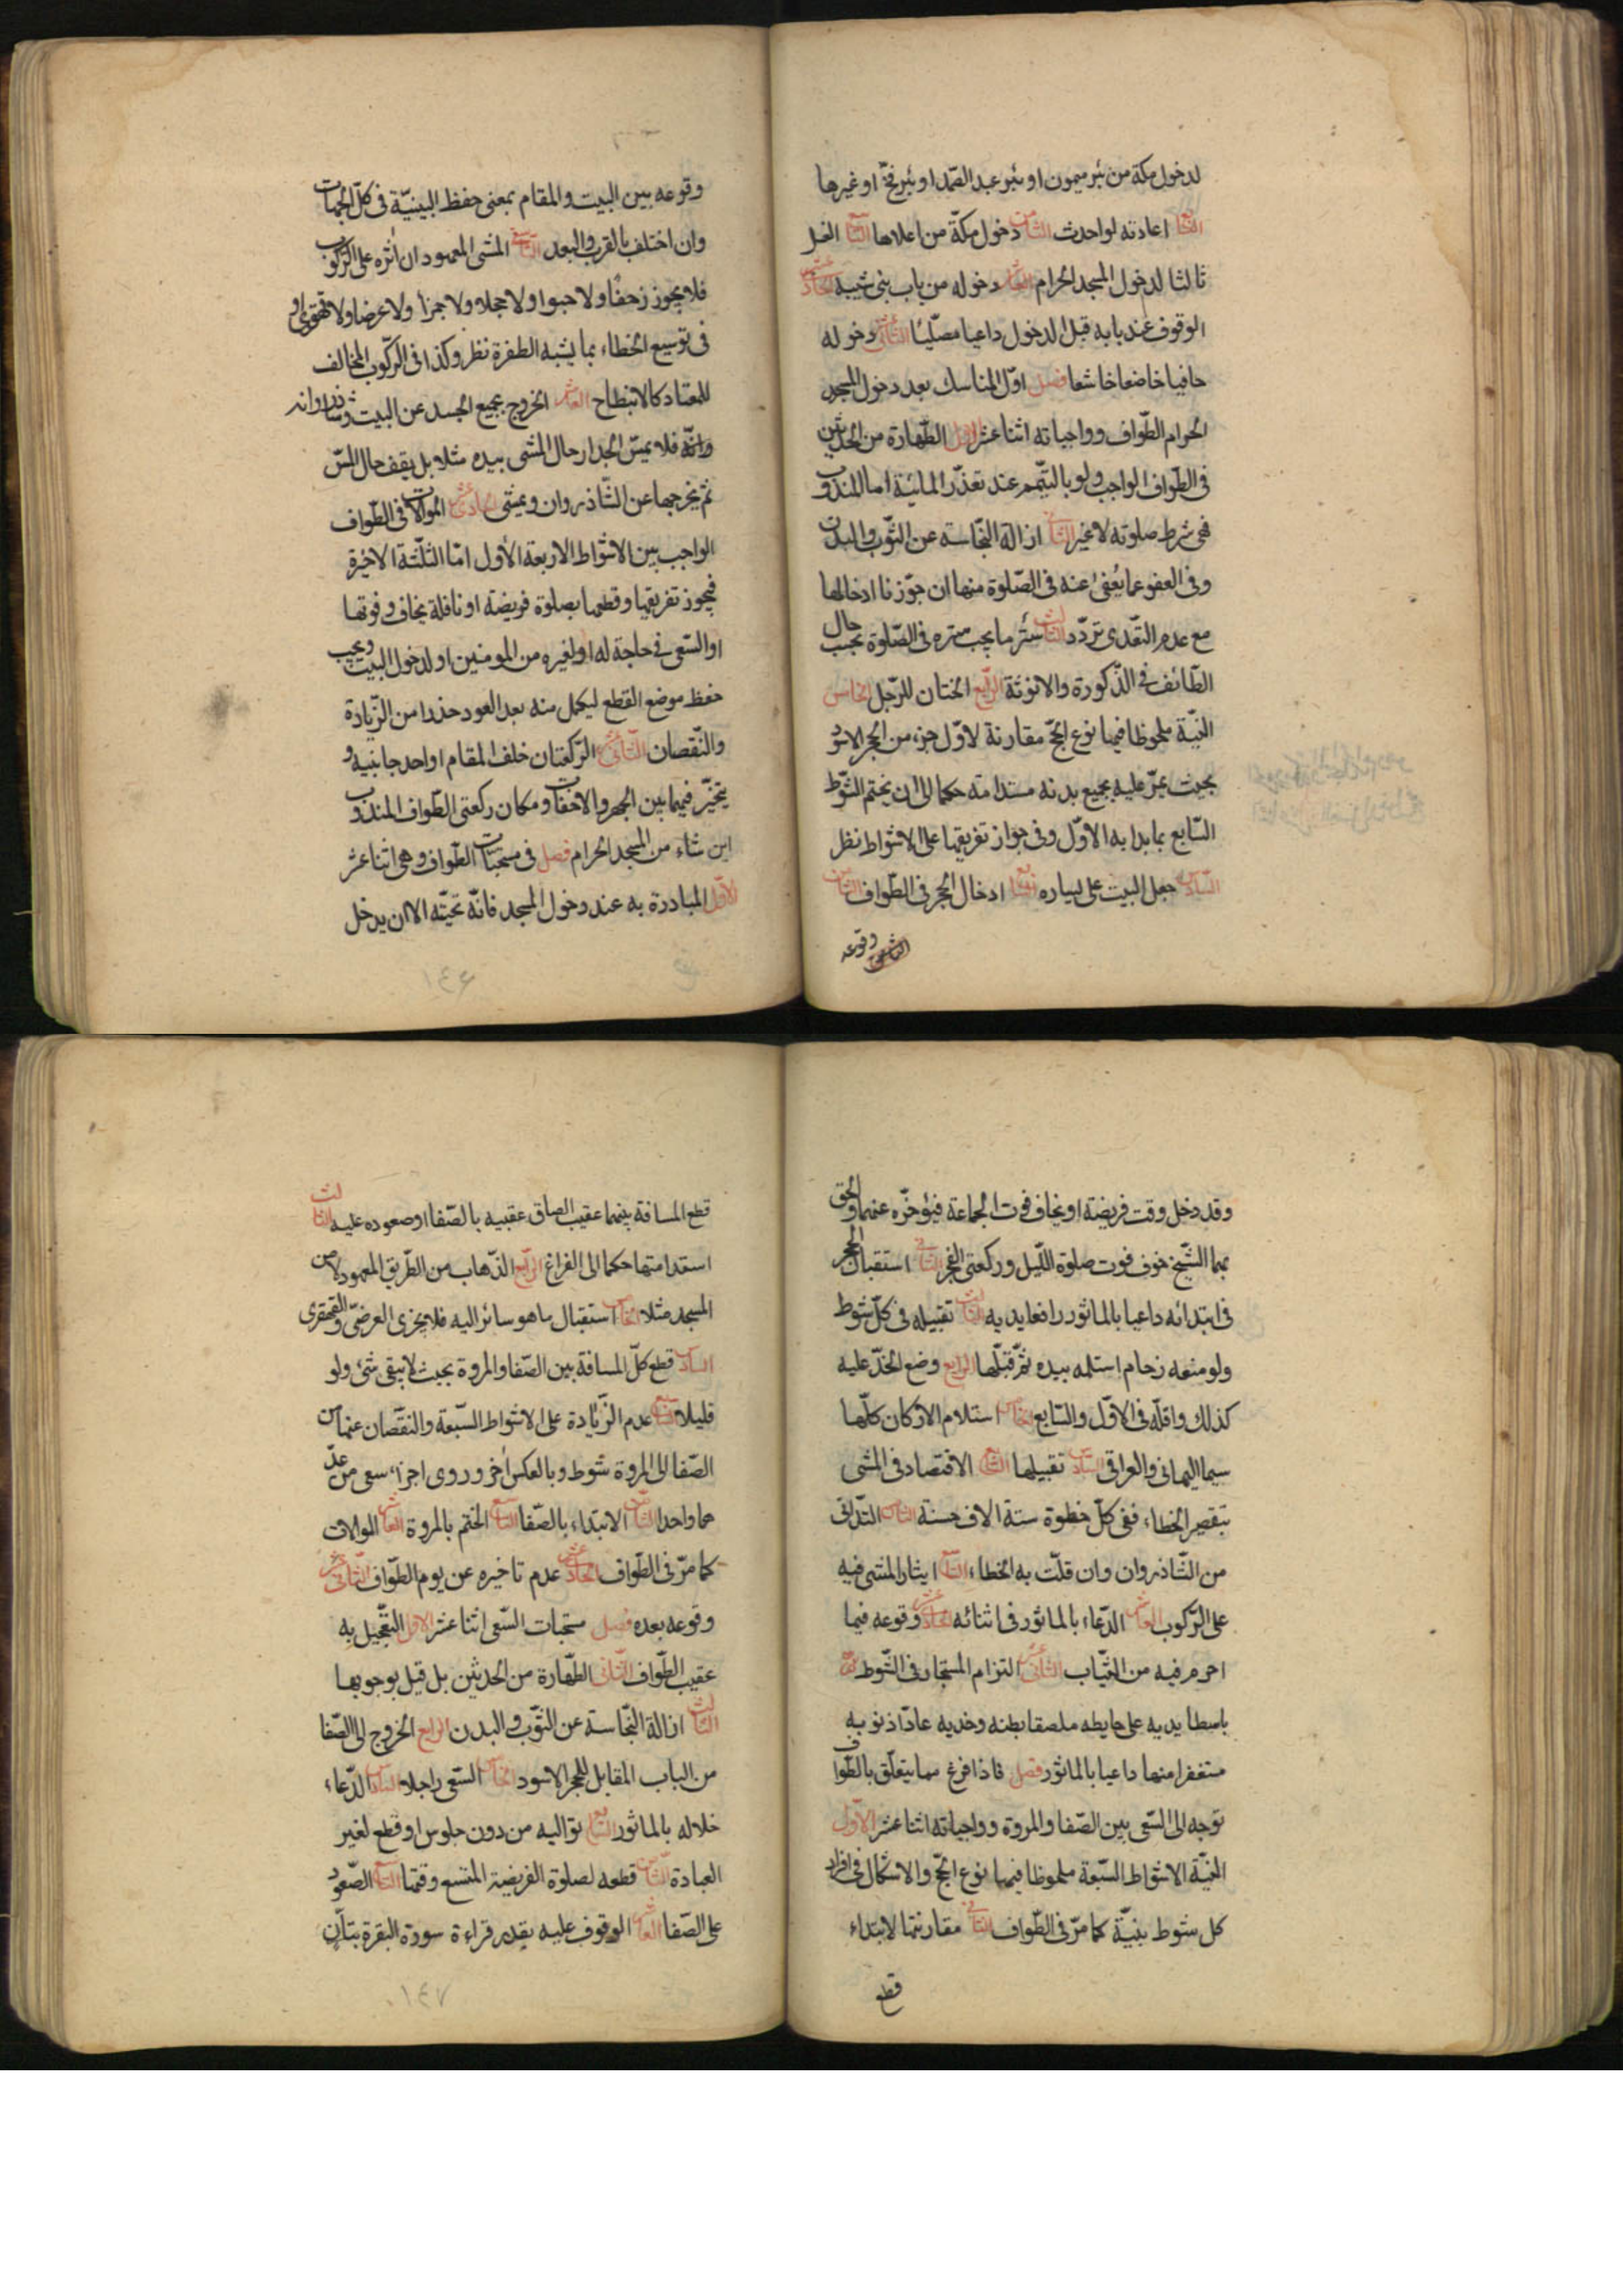 لدخول مكة من بئر ميمون او بئر عبد الصمد او بئر فخ او غيرها
السابع اعادته لو احدث الثامن دخول مكة من اعلاها التاسع الغسل
ثالثا لدخول المسجد الحرام العاشر دخوله من باب بنى شيبه الحادى عشر
الوقوف عند بابه قبل الدخول داعيا مصليا الثانى عشر دخوله
حافيا خاضعا خاشعا فصل اول المناسك بعد دخول المسجد
الحرام الطواف وواجباته اثنا عشر الاول الطهارة من الحدثين
فى الطواف الواجب ولو بالتيمم عند تعذر المائية اما المندوب
فهى شرط صلوته لا غير الثانى ازالة النجاسة عن الثوب والبدن
وفى العفو عما يعفى عنه فى الصلوة منها ان جوزنا ادخالها
مع عدم التعدى تردد الثالث ستر ما يجب ستره فى الصلوة بحسب حال
الطائف فى الذكورة والانوثة الرابع الختان للرجل الخامس
النية ملحوظا فيها نوع الحج مقارنة لاول جزء من الحجر الاسود
بحيث يمر عليه بجميع بدنه مستدامة حكما الى ان يختم الشوط
السابع بما بدا به الاول وفى جواز تفريقها على الاشواط نظر
السادس جعل البيت على يساره السابع ادخال الحجر فى الطواف الثامن
وقوعه
وقوعه بين البيت والمقام بمعنى حفظ البينية فى كل الجهات
وان اختلف بالقرب والبعد التاسع المشى المعهود ان اثره على الركوب
فلا يجوز زحفا ولا حبوا ولا حجلا ولا جمزا ولا عرضا ولا قهقرى و
فى توسيع الخطاء بما يشبه الطفرة نظر وكذا فى الركوب المخالف
للمعتاد كالانبطاح العاشر الخروج بجميع الجسد عن البيت وشاذروانه
فلا يمس الجدار حال المشى بيده مثلا بل يقف حال المس
ثم يخرجها عن الشاذروان ويمشى الحادى عشر الموالات فى الطواف
الواجب بين الاشواط الاربعة الاول اما الثلثة الاخيرة
فيجوز تفريقها وقطعها بصلوة فريضه او نافلة يخاف فوتها
او السعى فى حاجة له او لغيره من المومنين او لدخول البيت ويجب
حفظ موضع القطع ليكمل منه بعد العود حذرا من الزيادة
والنقصان الثانى عشر الركعتان خلف المقام او احد جانبيه و
يتخير فيهما بين الجهر والاخفات ومكان ركعتى الطواف المندوب
اين شاء من المسجد الحرام فصل فى مستحبات الطواف وهى اثنا عشر
الاول المبادرة به عند دخول المسجد فانه تحيته الا ان يدخل
١٤٦
وقد دخل وقت فريضة او يخاف فوت الجماعة فيؤخره عنهما والحق
بهما الشيخ خوف فوت صلوة الليل وركعتى الفجر الثانى استقبال الحجر
فى ابتدائه داعيا بالماثور رافعا يديه الثالث تقبيله فى كل شوط
ولو منعه زحام استلمه بيده ثم قبلها الرابع وضع الخد عليه
كذلك واقله فى الاول والسابع الخامس استلام الاركان كلها
سيما اليمانى والعراقى السادس تقبيلها السابع الاقتصاد فى المشى
بتقصير الخطاء ففى كل خطوة ستة الاف حسنة الثامن التدانى
من الشاذروان وان قلت به الخطاء التاسع ايثار المشى فيه
على الركوب العاشر الدعاء بالماثور فى اثنائه الحادى عشر وقوعه فيما
احرم فيه من الثياب الثانى عشر التزام المستجار فى الشوط السابع
باسطا يديه على حايطه ملصقا بطنه وخديه عادا ذنوبه
مستغفرا منها داعيا بالماثور فصل فاذا فرغ مما يتعلق بالطواف
توجه الى السعى بين الصفا والمروة وواجباته اثنا عشر الاول
النية الاشواط السبعة ملحوظا فيها نوع الحج والاشكال فى افراد
كل شوط بنية كما مر فى الطواف الثانى مقارنتها لابتداء
قطع
قطع المسافة بينهما عقيب الصاق عقبيه بالصفا او صعوده عليه الثالث
استدامتها حكما الى الفراغ الرابع الذهاب من الطريق المعهود لا من
المسجد مثلا الخامس استقبال ما هو سائر اليه فلا يجزى العرضى والقهقرى
السادس قطع كل المسافة بين الصفا والمروة بحيث لا يبقى شئ ولو
قليلا السابع عدم الزيادة على الاشواط السبعة والنقصان عنها من
الصفا الى المروة شوط وبالعكس اخر وروى اجزاء سعى من عد
هما واحدا الثامن الابتداء بالصفا التاسع الختم بالمروة العاشر الموالات
كما مر فى الطواف الحادى عشر عدم تاخيره عن يوم الطواف الثانى عشر
وقوعه بعده فصل مستحبات السعى اثنا عشر الاول التعجيل به
عقيب الطواف الثانى الطهارة من الحدثين بل قيل بوجوبها
الثالث ازالة النجاسة عن الثوب والبدن الرابع الخروج الى الصفا
من الباب المقابل للحجر الاسود الخامس السعى راجلا السادس الدعاء
خلاله بالماثور السابع تواليه من دون جلوس او قطع لغير
العبادة الثامن قطعه لصلوة الفريضة المتسع وقتها التاسع الصعود
على الصفا العاشر الوقوف عليه بقدر قراءة سورة البقرة بتان
١٤٧